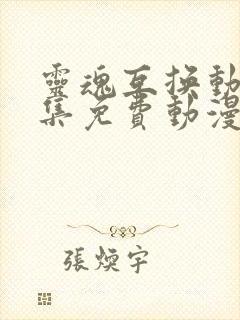 靈魂互換動
集免費動漫
張煥宇